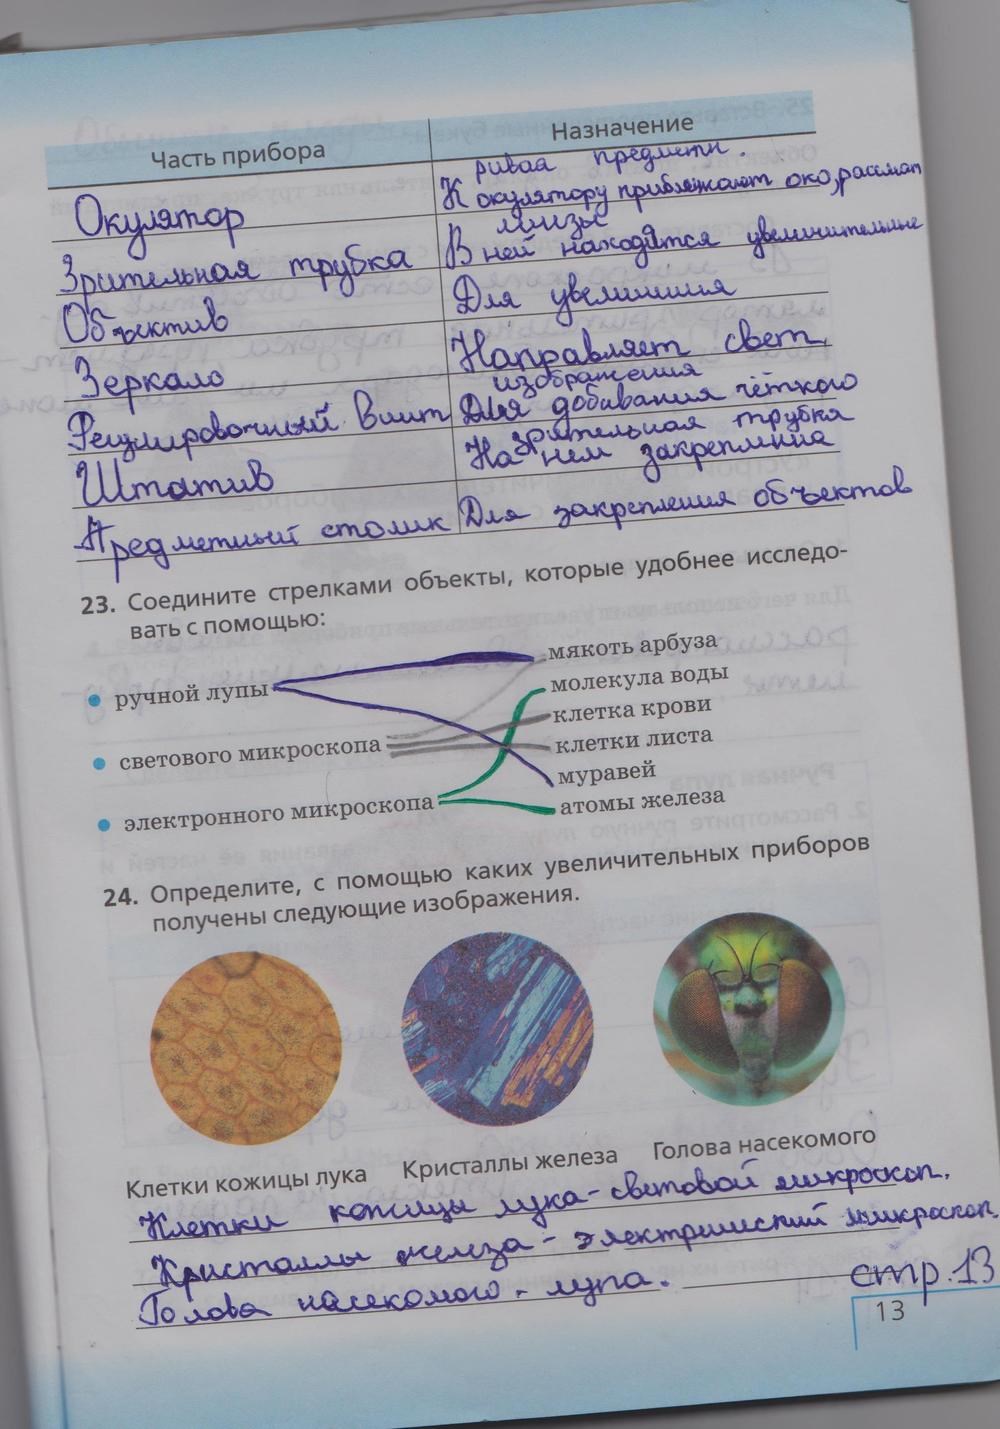 Часть прибора
Назначение
Окулятор
ривая предметы.
К окулятору приближают око, рассмат
Зрительная трубка
линзы
В ней находятся увеличительные
Объектив
Для увелишия
Зеркало
Направляет свет,
Регулировочный винт
изображения
Для добавания чёткого
Штатив
зрительная трубка
На нем закреплина
Предметный столик
Для закрепления объектов
23. Соедините стрелками объекты, которые удобнее исследо-
вать с помощью:
ручной лупы
светового микроскопа
электронного микроскопа
мякоть арбуза
молекула воды
клетка крови
клетки листа
муравей
атомы железа
24. Определите, с помощью каких увеличительных приборов
получены следующие изображения.
Клетки кожицы лука
Кристаллы железа
Голова насекомого
Клетки кожицы лука - световой микроскоп.
Кристаллы железа - микроскоп
Голова насекомого - лупа.
стр. 13
13